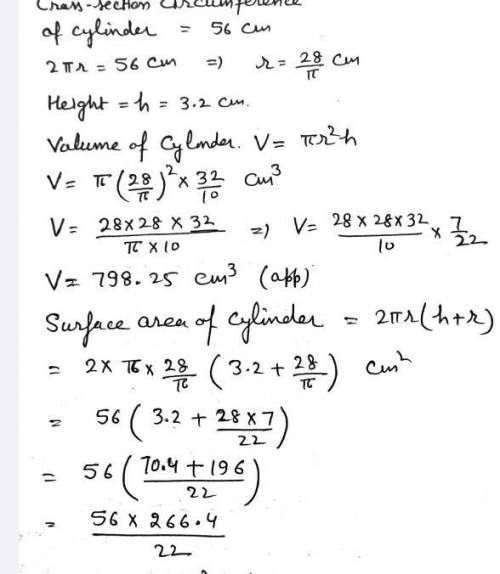 Cross-section Circumference
of cylinder = 56 cm
2πr = 56 cm => r = 28/π cm
Height = h = 3.2 cm.
Volume of Cylinder. V = πr²h
V = π(28/π)² × 32/10 cm³
V = 28×28 × 32/π × 10 => V = 28 × 28×32/10 × 7/22
V = 798.25 cm³ (app)
Surface area of cylinder = 2πr(h+r)
= 2 × π × 28/π (3.2 + 28/π) cm²
= 56 (3.2 + 28 × 7/22)
= 56 (70.4 + 196/22)
= 56 × 266.4/22